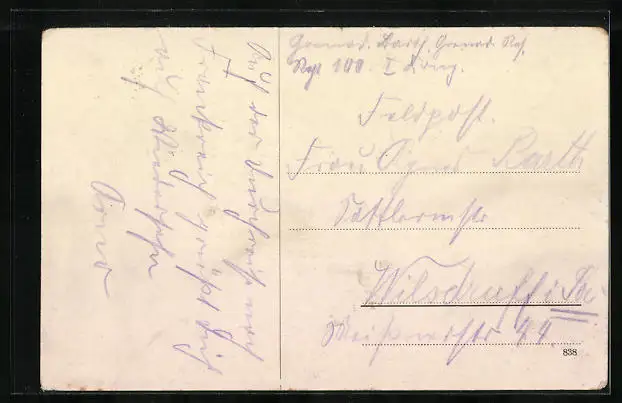 Auf der Durchreise nach
Frankreich grüßt Dich
auf Wiedersehn
Arno
Grenad. Barth, Grenad. Res.
Regt 100. I
Feldpost.
Frau Agnes Barth
Sattlermstr
Wilsdruff i Sa.
Meißnerstr 44
838